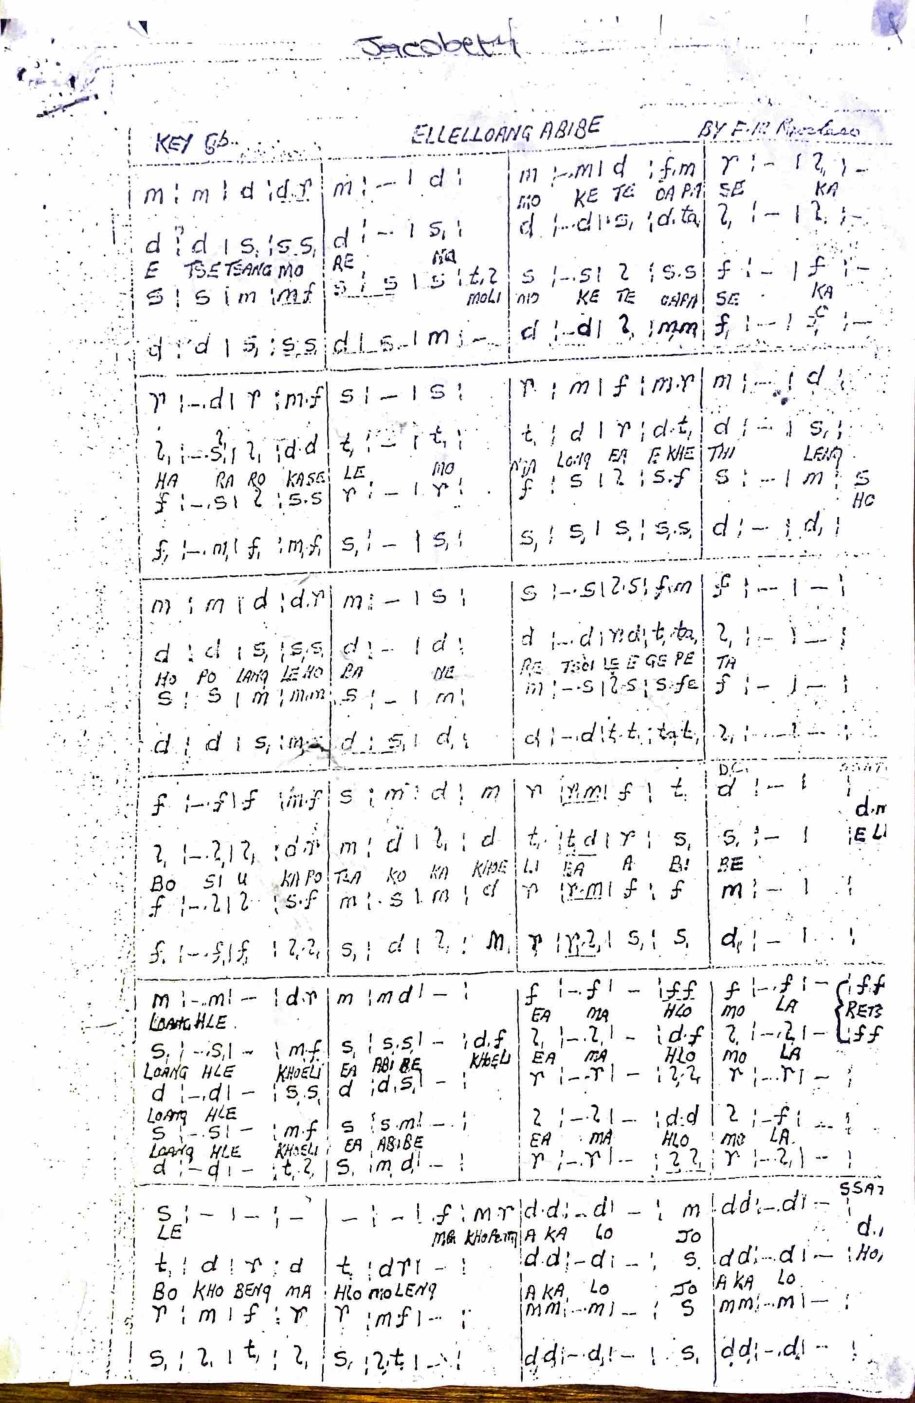 Jacobeth
KEY Gb. ELLELLOANG ABIBE BY F.M
m ¦ m | d ¦ d.r | m ¦ – | d ¦ | m ¦ –.m | d ¦ f.m | r ¦ – | l, ¦ –
MO KE TE SE KA
d ¦ d | s, ¦ s,.s, | d ¦ – | s, ¦ | d ¦ –.d | s, ¦ d.ta, | l, ¦ – | l, ¦ –
E TSE TSANG MO RE NA
s ¦ s | m ¦ m.f | s ¦ s | s ¦ t,.l | s ¦ –.s | l ¦ s.s | f ¦ – | f ¦ –
MOLI MO KE TE OAPA SE KA
d ¦ d | s, ¦ s,.s, | d | s, | m ¦ – | d ¦ –.d | l, ¦ m.m | f, ¦ – | f, ¦ –
r ¦ –.d | r ¦ m.f | s ¦ – | s ¦ | r ¦ m | f ¦ m.r | m ¦ – | d ¦
l, ¦ –.s, | l, ¦ d.d | t, ¦ – | t, ¦ | t, ¦ d | r ¦ d.t, | d ¦ – | s, ¦
HA RA RO KASE LE MO LONG EA E KHE THI LENG
f ¦ –.s | l ¦ s.s | r ¦ – | r ¦ | f ¦ s | l ¦ s.f | s ¦ – | m ¦ s
HO
f, ¦ –.m, | f, ¦ m,.f, | s, ¦ – | s, ¦ | s, ¦ s, | s, ¦ s,.s, | d ¦ – | d, ¦
m ¦ m | d ¦ d.r | m ¦ – | s ¦ | s ¦ –.s | l.s ¦ f.m | f ¦ – | – ¦
d ¦ d | s, ¦ s,.s, | d ¦ – | d ¦ | d ¦ –.d | r.d ¦ t,.ta, | l, ¦ – | – ¦
HO PO LANG LE HO BA NE RE TSOI LE E GE PE TA
s ¦ s | m ¦ m.m | s ¦ – | m ¦ | m ¦ –.s | l.s ¦ s.fe | f ¦ – | – ¦
d ¦ d | s, ¦ m, | d ¦ s, | d, ¦ | d ¦ –.d | t,.t, ¦ ta,.t, | l, ¦ – | – ¦
D.C.
f ¦ –.f | f ¦ m.f | s ¦ m ¦ d ¦ m | r ¦ r.m | f ¦ t, | d ¦ – | ¦
d.m
l, ¦ –.l, | l, ¦ d.r | m ¦ d | l, ¦ d | t, ¦ t,.d | r ¦ s, | s, ¦ – | ¦ E LI
BO SI U KA PO TLA KO KA KHOE LI EA A BI BE
f ¦ –.l | l ¦ s.f | m ¦ s | m ¦ d | r ¦ r.m | f ¦ f | m ¦ – | ¦
f, ¦ –.f, | f, ¦ l,.l, | s, ¦ d | l, ¦ m, | r ¦ r.l, | s, ¦ s, | d, ¦ – | ¦
m ¦ –.m | – ¦ d.r | m ¦ m.d | – ¦ | f ¦ –.f | – ¦ f.f | f ¦ –.f | – ¦ f.f
LOANG HLE EA MA HLO MO LA RETS
s, ¦ –.s, | – ¦ m.f | s, ¦ s.s | – ¦ d.f | l, ¦ –.l, | – ¦ d.f | l, ¦ –.l, | – ¦ f.f
LOANG HLE KHOELI EA ABIBE KHOELI EA MA HLO MO LA
d ¦ –.d | – ¦ s.s | d ¦ d.s, | – ¦ | r ¦ –.r | – ¦ l,.l, | r ¦ –.r | – ¦
LOANG HLE
s ¦ –.s | – ¦ m.f | s ¦ s.m | – ¦ | l ¦ –.l | – ¦ d.d | l ¦ –.f | – ¦
LOANG HLE KHOELI EA ABIBE EA MA HLO MO LA
d ¦ –.d | – ¦ t,.l, | s, ¦ m.d | – ¦ | r ¦ –.r | – ¦ l.l, | r ¦ –.l, | – ¦
SSAT
s ¦ – | – ¦ – | – ¦ – | .f ¦ m.r | d.d ¦ –.d | – ¦ m | d.d ¦ –.d | –
LE MA A KA LO JO
t, ¦ d | r ¦ d | t, ¦ d.r | – ¦ | d.d ¦ –.d | – ¦ s, | d.d ¦ –.d | – ¦ HO,
BO KHO BENG MA HLO MOLENG A KA LO JO A KA LO
r ¦ m | f ¦ r | r ¦ m.f | – ¦ | m.m ¦ –.m | – ¦ s | m.m ¦ –.m | – ¦
s, ¦ l, | t, ¦ l, | s, ¦ l,.t, | – ¦ | d.d ¦ –.d, | – ¦ s, | d.d ¦ –.d | – ¦